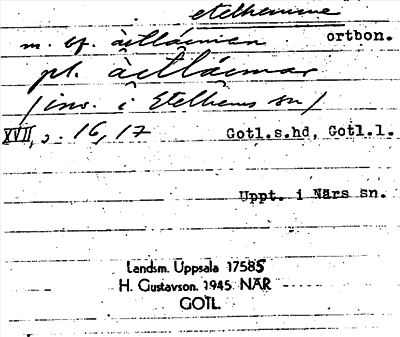 etelhemme
m. bf. àitláiman ortbon.
pl. àitláimar
/inv. i Etelhems sn/
XVII, 2. 16, 17 Gotl.s.hd, Gotl.l.
Uppt. i Närs sn.
Landsm. Uppsala 17585
H. Gustavson. 1945. NÄR
GOTL.